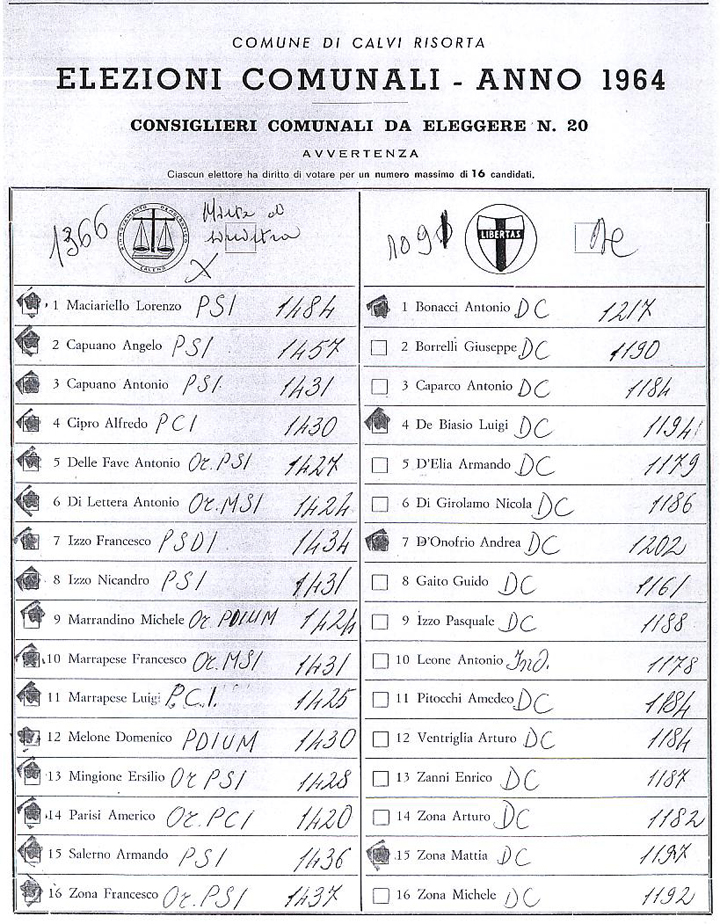 COMUNE DI CALVI RISORTA
ELEZIONI COMUNALI - ANNO 1964
CONSIGLIERI COMUNALI DA ELEGGERE N. 20
AVVERTENZA
Ciascun elettore ha diritto di votare per un numero massimo di 16 candidati.
1366
X
1 Maciariello Lorenzo PSI 1484
2 Capuano Angelo PSI 1457
3 Capuano Antonio PSI 1431
4 Cipro Alfredo PCI 1430
5 Delle Fave Antonio Or. PSI 1427
6 Di Lettera Antonio Or. MSI 1424
7 Izzo Francesco PSDI 1434
8 Izzo Nicandro PSI 1431
9 Marrandino Michele Or PDIUM 1424
10 Marrapese Francesco Or. MSI 1431
11 Marrapese Luigi P.C.I. 1425
12 Melone Domenico PDIUM 1430
13 Mingione Ersilio Or PSI 1428
14 Parisi Americo Or. PCI 1420
15 Salerno Armando PSI 1436
16 Zona Francesco Or. PSI 1437
LIBERTAS
1 Bonacci Antonio DC 1217
2 Borrelli Giuseppe DC 1190
3 Caparco Antonio DC 1184
4 De Biasio Luigi DC 1194
5 D'Elia Armando DC 1179
6 Di Girolamo Nicola DC 1186
7 D'Onofrio Andrea DC 1202
8 Gaito Guido DC 1161
9 Izzo Pasquale DC 1188
10 Leone Antonio Ind. 1178
11 Pitocchi Amedeo DC 1184
12 Ventriglia Arturo DC 1184
13 Zanni Enrico DC 1187
14 Zona Arturo DC 1182
15 Zona Mattia DC 1197
16 Zona Michele DC 1192